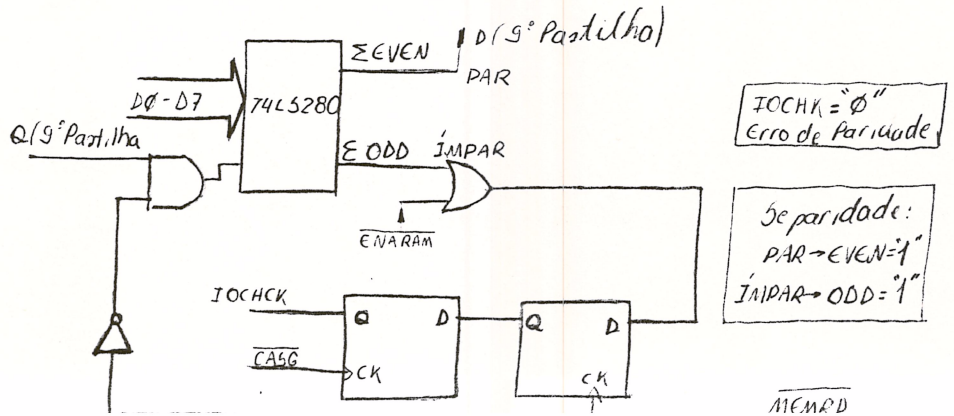 Σ EVEN
D (9º Pastilha)
PAR
D0-D7
74LS280
Q (9º Pastilha
Σ ODD ÍMPAR
ENARAM
IOCHK="0"
Erro de Paridade
Se paridade:
PAR→EVEN="1"
ÍMPAR→ODD="1"
IOCHCK
Q D
Q D
CASG
CK
CK
MEMRD